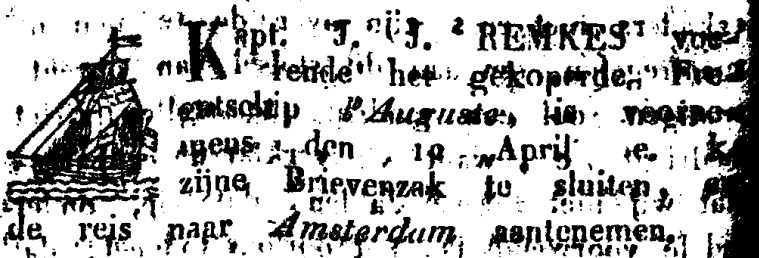 Kapt. J. J. REMKES voe-
rende het gekoperde Fre-
gatschip l'Auguste, is voorne-
mens den 10 April e. k.
zijne Brievenzak te sluiten, en
de reis naar Amsterdam aantenemen.